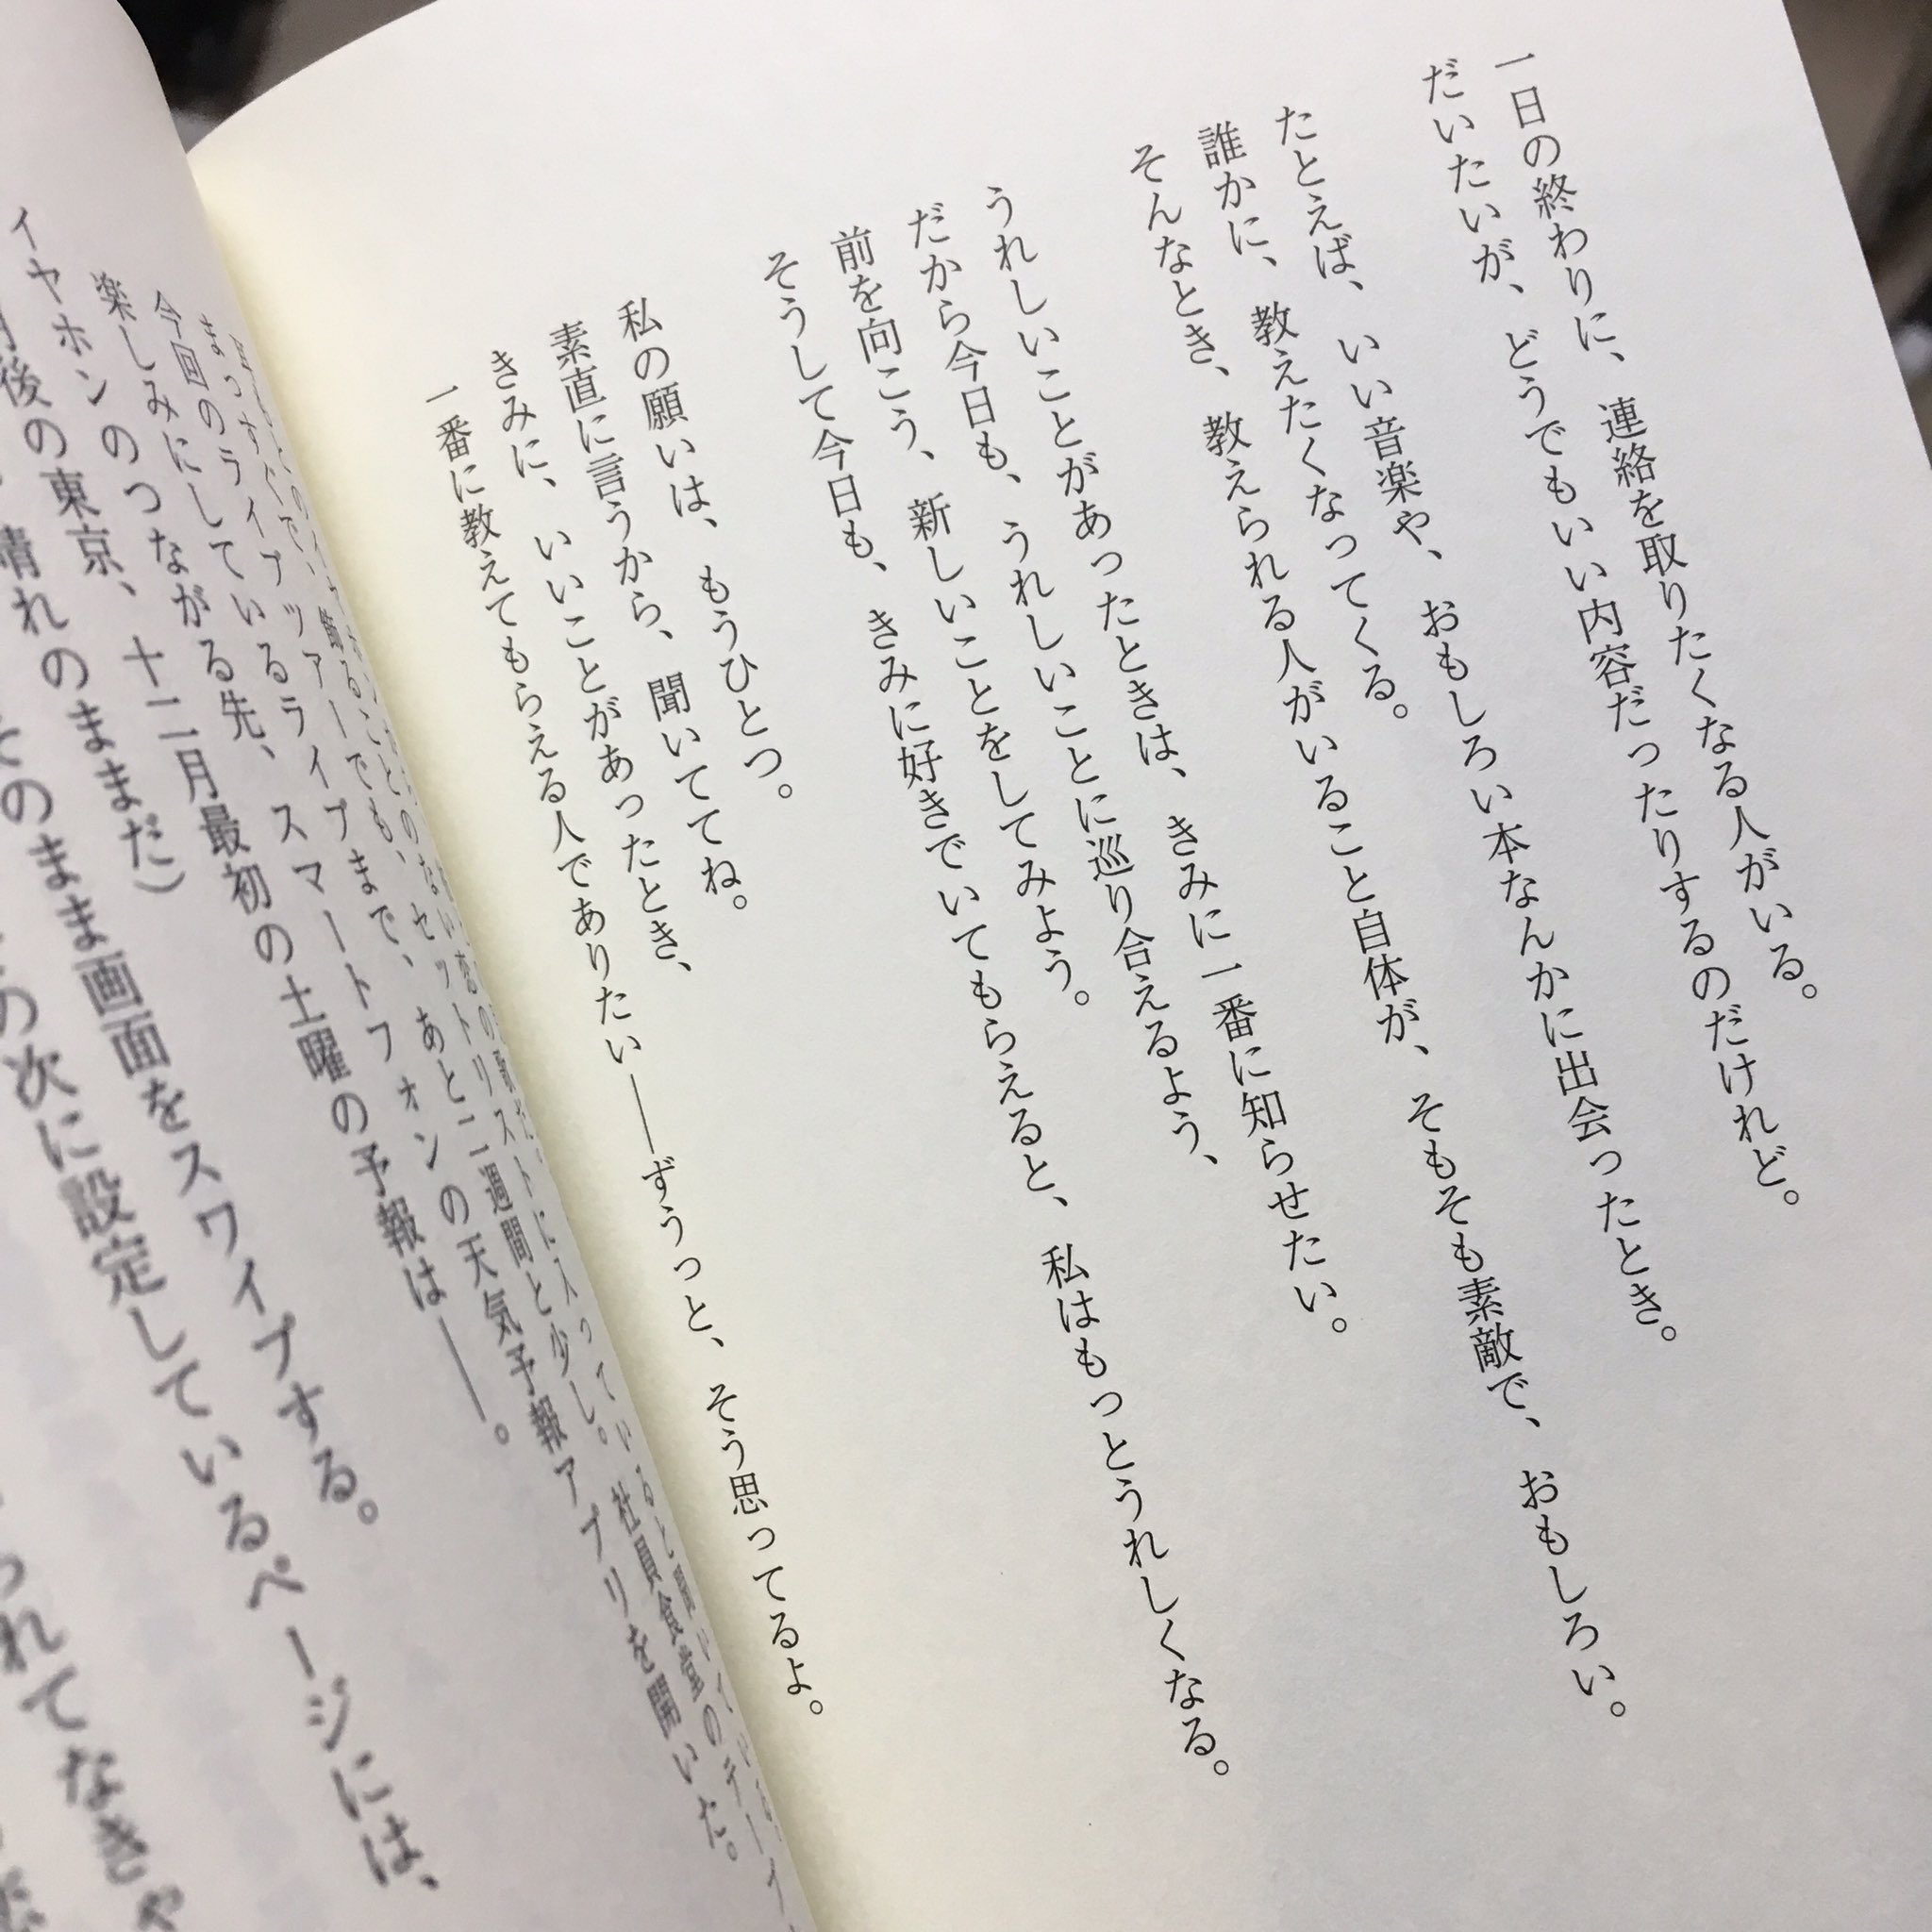 一日の終わりに、連絡を取りたくなる人がいる。
だいたいが、どうでもいい内容だったりするのだけれど。
たとえば、いい音楽や、おもしろい本なんかに出会ったとき。
誰かに、教えたくなってくる。
そんなとき、教えられる人がいること自体が、そもそも素敵で、おもしろい。
うれしいことがあったときは、きみに一番に知らせたい。
だから今日も、うれしいことに巡り合えるよう、
前を向こう、新しいことをしてみよう。
そうして今日も、きみに好きでいてもらえると、私はもっとうれしくなる。
私の願いは、もうひとつ。
素直に言うから、聞いててね。
きみに、いいことがあったとき、
一番に教えてもらえる人でありたい――ずうっと、そう思ってるよ。
今回のライブツアーでも、セットリストに入っている
楽しみにしているライブまで、あと二週間と少し。社員食堂のテーブ
イヤホンのつながる先、スマートフォンの天気予報アプリを開いた。
後の東京、十二月最初の土曜の予報は――。
晴れのままだ）
そのまま画面をスワイプする。
の次に設定しているページには、
れてなきゃ